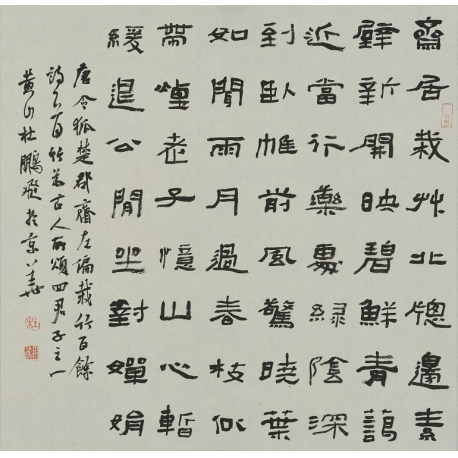 齋居栽竹北牕邊素
壁新開映碧鮮青藹
近當行藥處綠陰深
到臥帷前風驚曉葉
如聞雨月過春枝似
帶煙老子憶山心暫
緩退公閒坐對嬋娟
唐令狐楚郡齋左偏栽竹百餘
詩首竹為古人所頌四君子之一
黃山杜鵬飛於京華